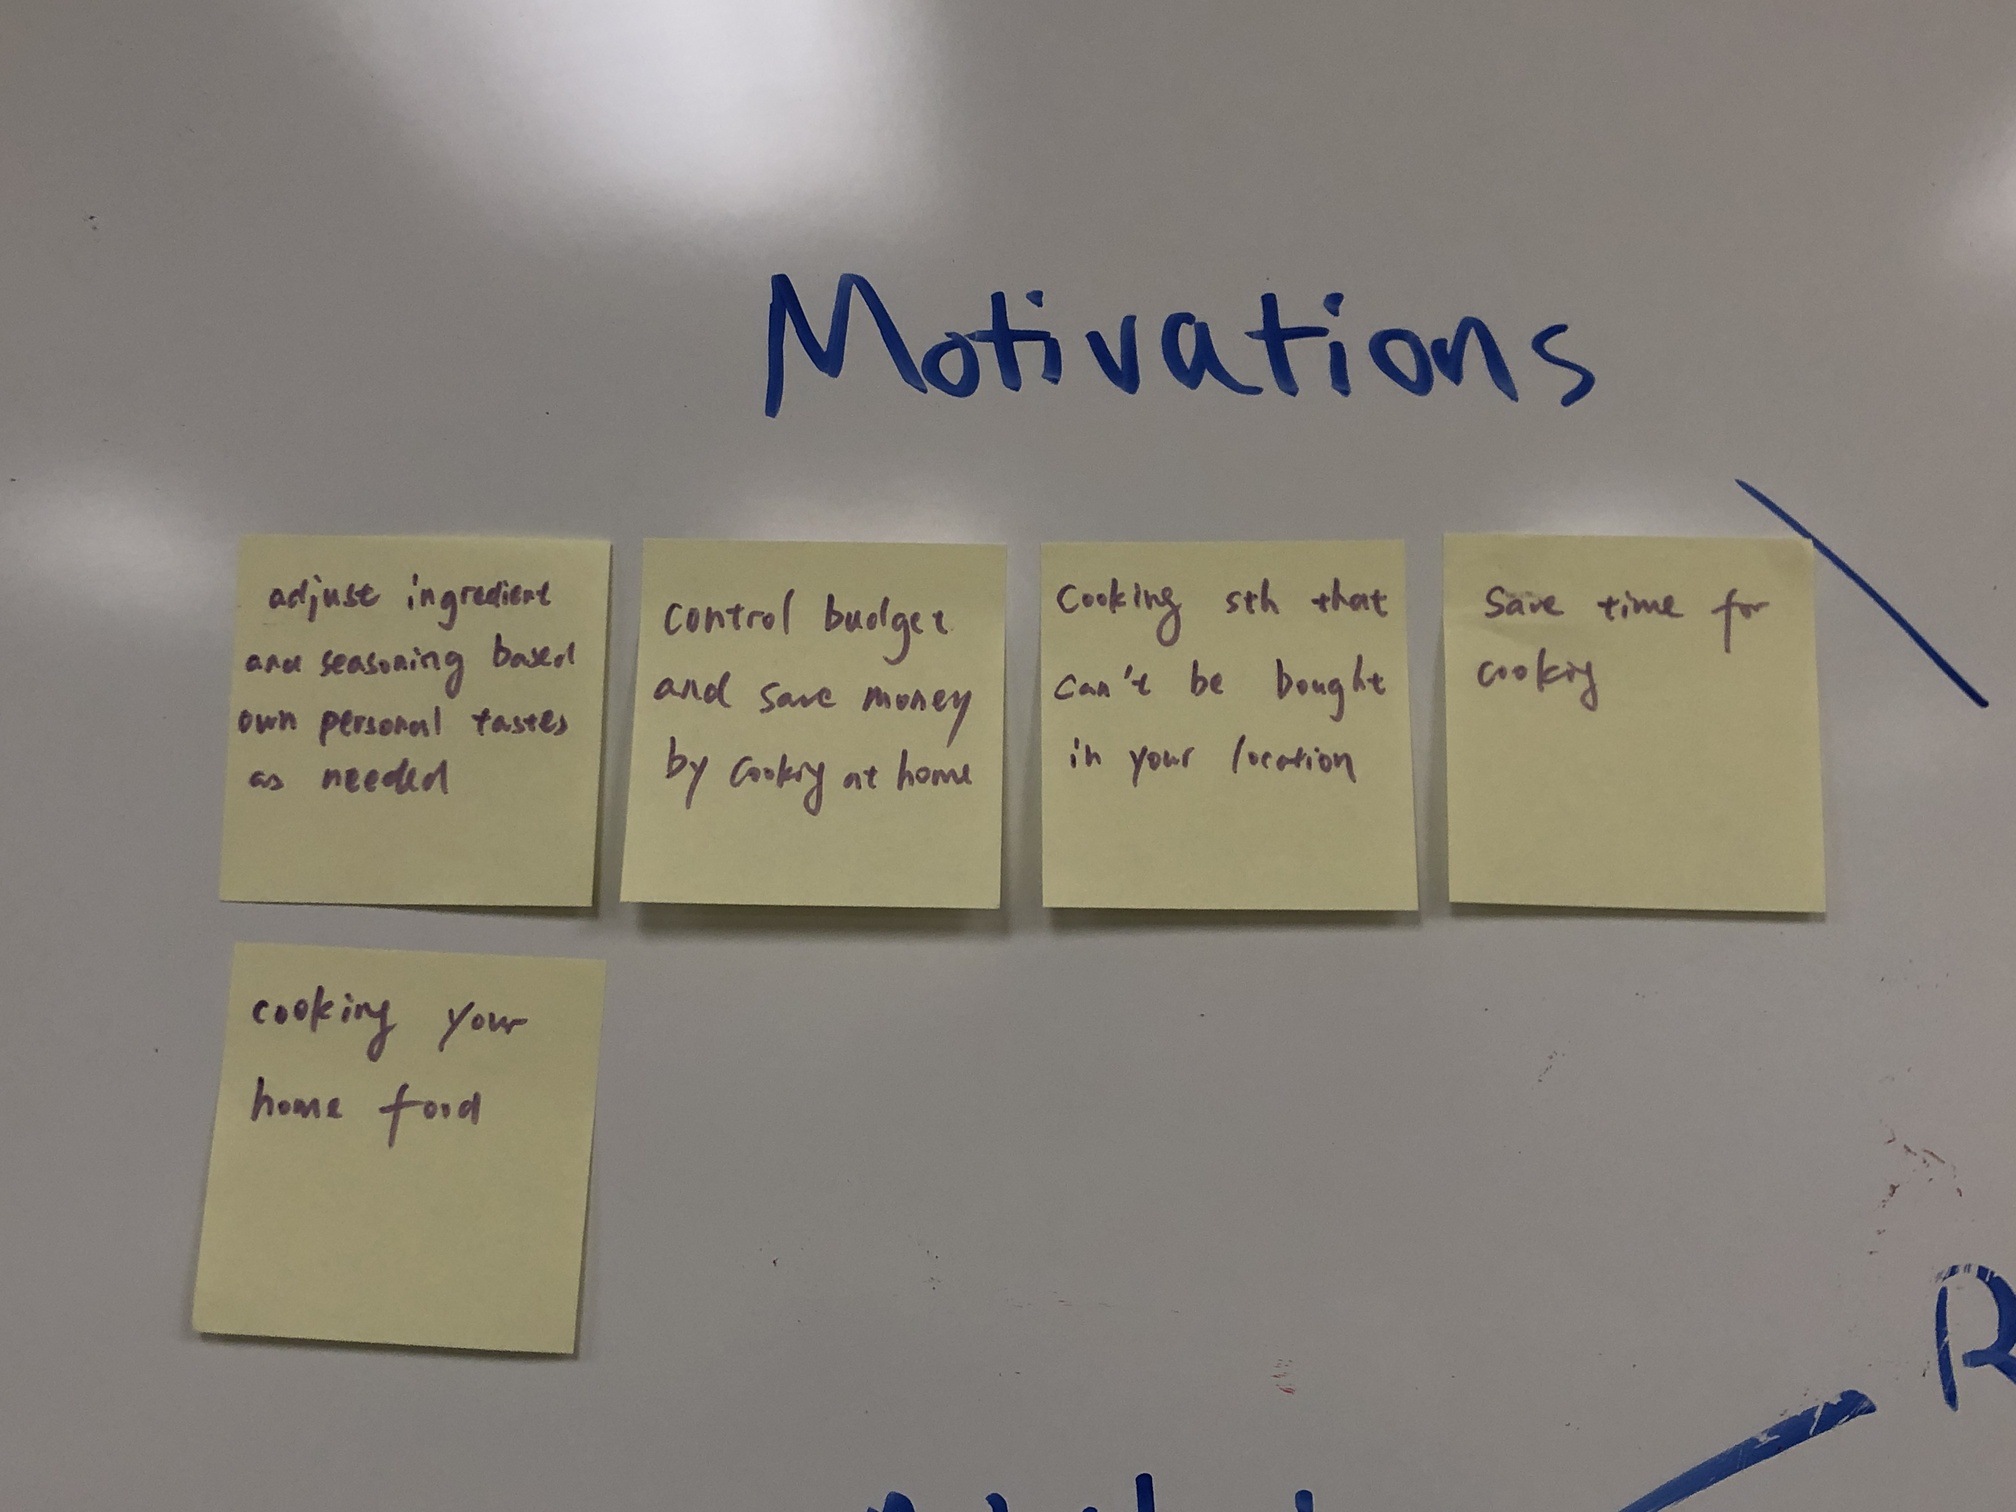 Motivations
adjust ingredient
and seasoning based
own personal tastes
as needed
control budget
and save money
by cooking at home
Cooking sth that
can't be bought
in your location
Save time for
cooking
cooking your
home food
R